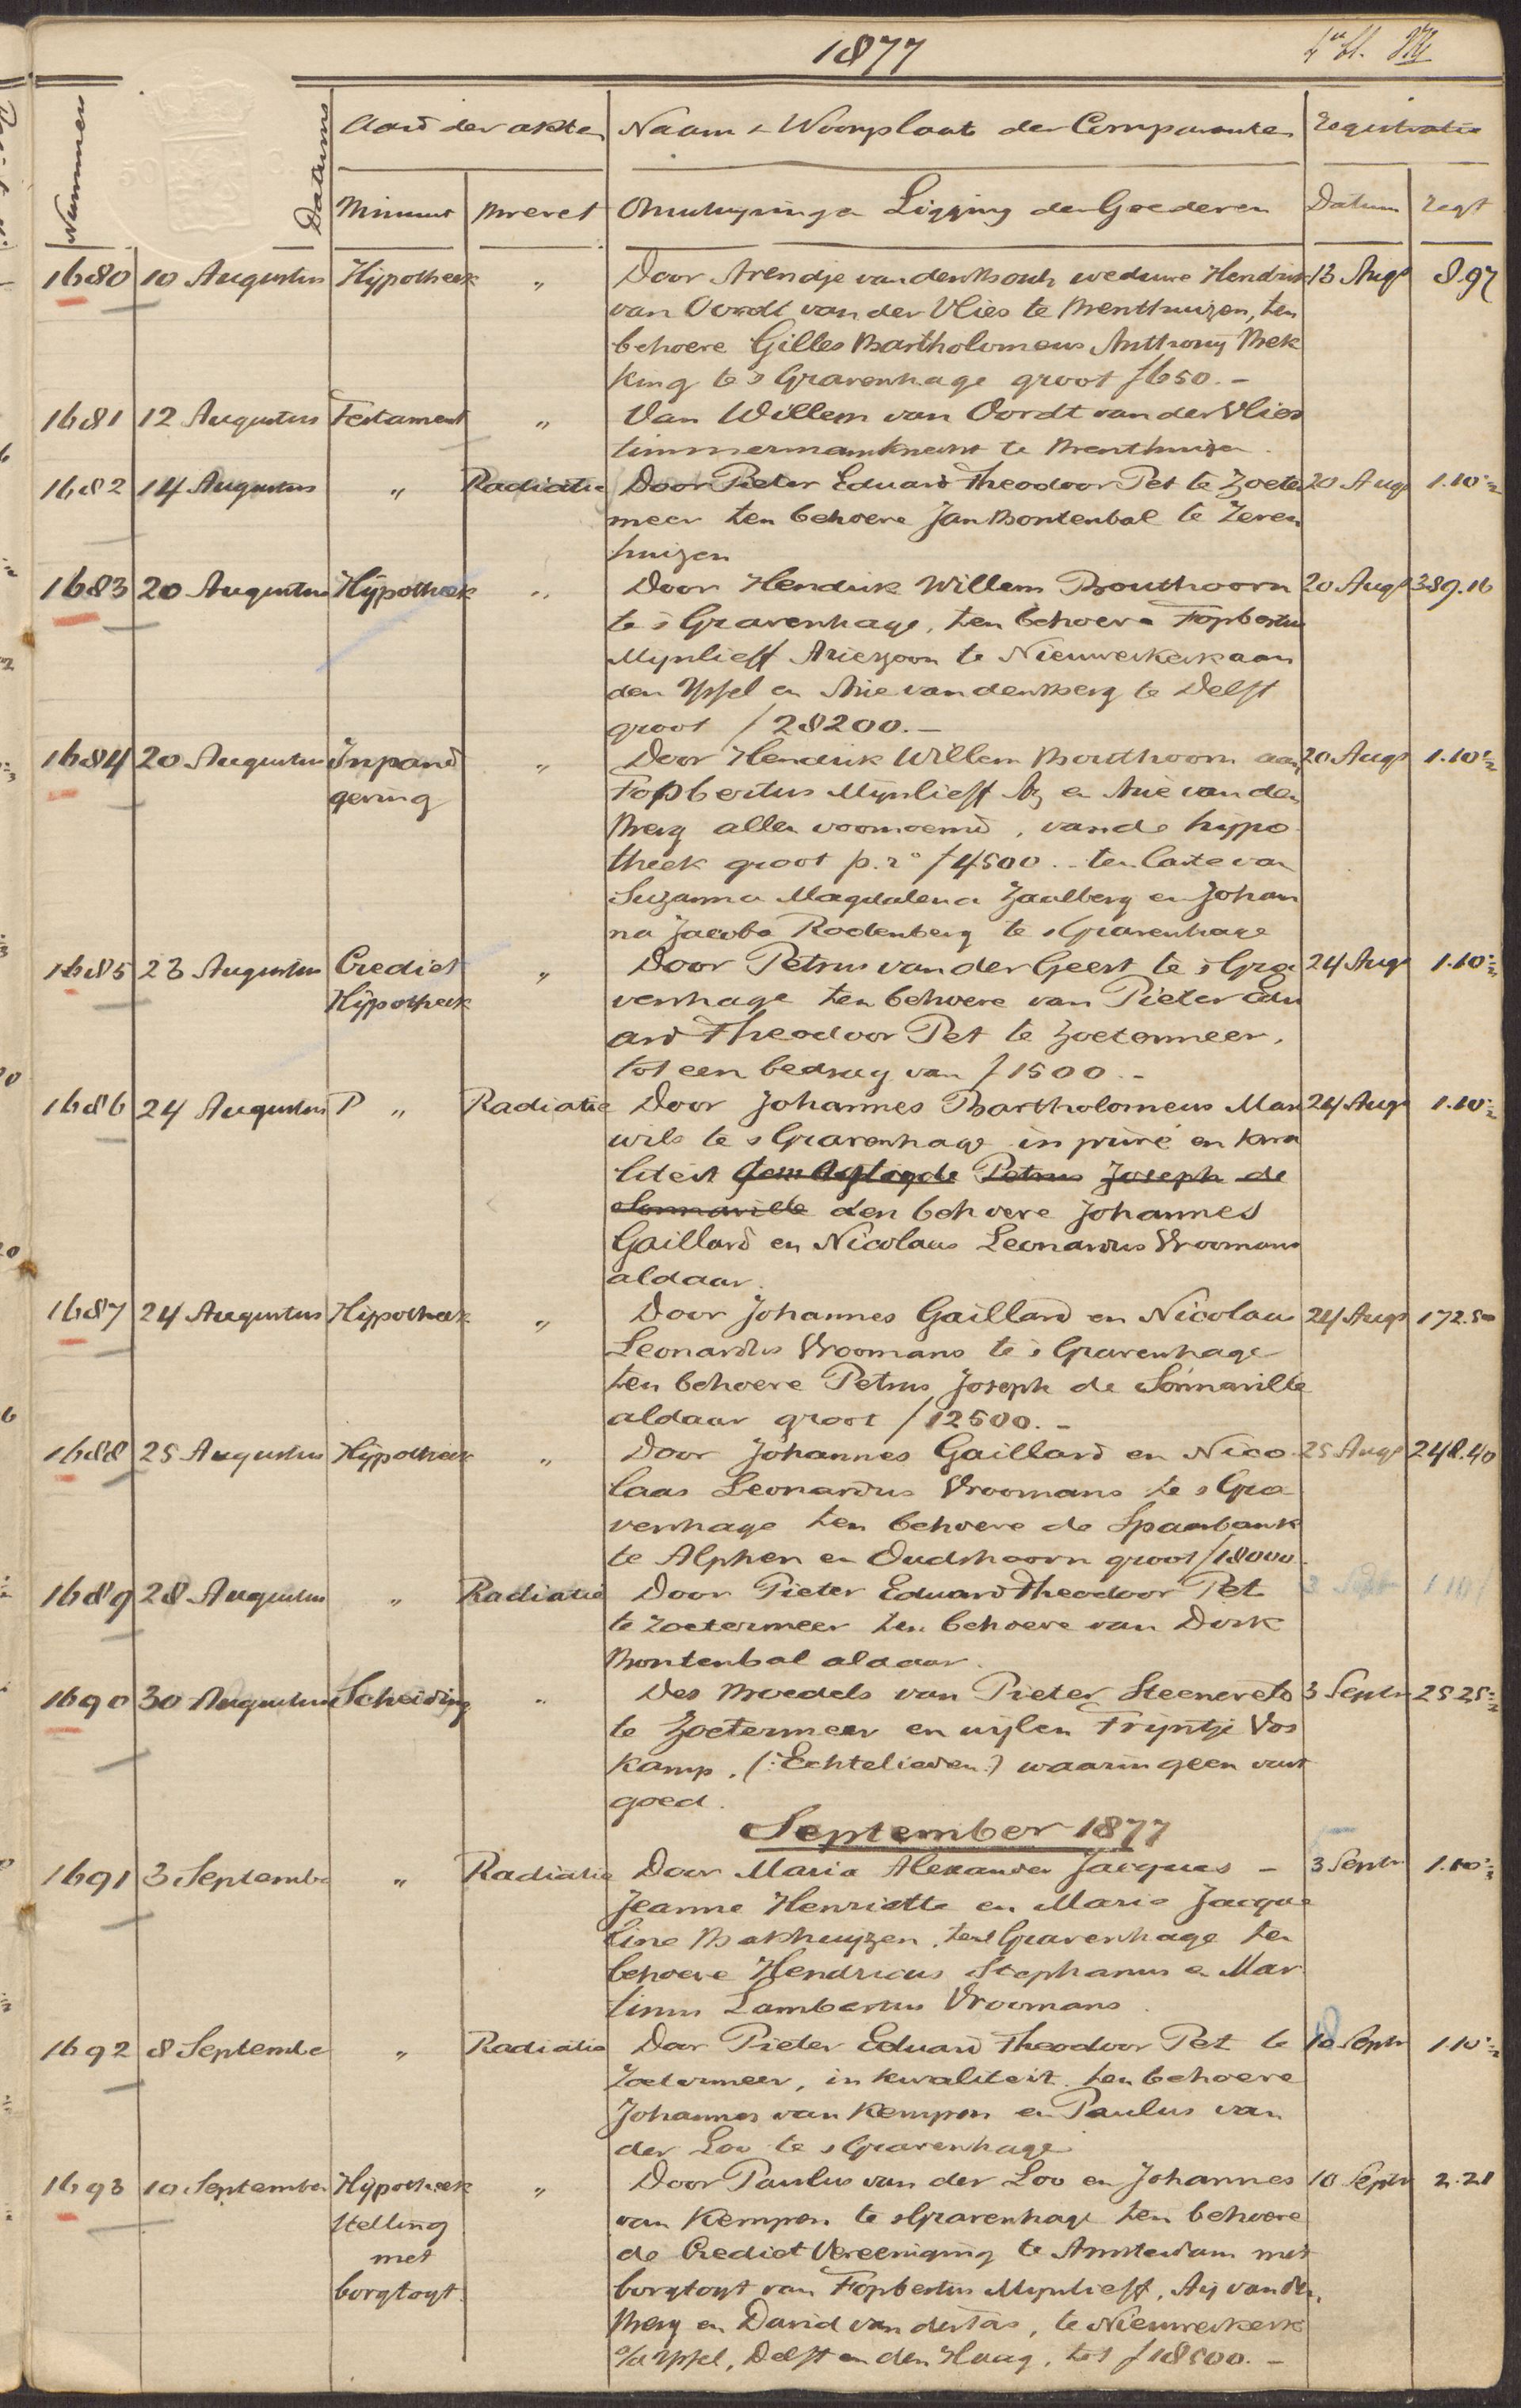 1877
4e bl.
Nummers
Datums
Aard der akten
Naam & Woonplaats der Comparanten
Registratie
Minuut
Brevet
Omschrijving en Ligging der Goederen
Datum
regt
1680 10 Augustus Hypotheek „ Door Arendje van den Bosch weduwe Hendrik 13 Augs 8.97
van Oordt van der Vlies te Benthuizen, ten
behoeve Gilles Bartholomeus Anthony Bek
king te s Gravenhage groot ƒ650.-
1681 12 Augustus Testament „ Van Willem van Oordt van der Vlies
timmermansknecht te Benthuizen.
1682 14 Augustus „ Radiatie Door Pieter Eduard Theodoor Pet te Zoeter 20 Augs 1.10½
meer ten behoeve Jan Bontenbal te Zeven
huizen
1683 20 Augustus Hypotheek „ Door Hendrik Willem Bouthoorn 20 Augs 389.16
te s Gravenhage, ten behoeve Fopbertus
Mijnlieff Ariezoon te Nieuwerkerk aan
den Yssel en Arie van den Berg te Delft
groot ƒ28200.-
1684 20 Augustus Inpand „ Door Hendrik Willem Bouthoorn aan 20 Augs 1.10½
geving Fopbertus Mijnlieff Az en Arie van den
Berg allen voornoemd, van de hypo
theek groot p.r. ƒ4500.- ten laste van
Suzanna Magdalena Zaalberg en Johan
na Jacoba Rodenberg te s Gravenhage
1685 23 Augustus Crediet „ Door Petrus van der Geest te s Gra 24 Augs 1.10½
Hypotheek venhage ten behoeve van Pieter Edu
ard Theodoor Pet te Zoetermeer,
tot een bedrag van ƒ1500.-
1686 24 Augustus P „ Radiatie Door Johannes Bartholomeus Man 24 Augs 1.10½
wils te s Gravenhage in privé en kwa
liteit Petrus Joseph de
Sonnaville den behoeve Johannes
Gaillard en Nicolaus Leonardus Vroomans
aldaar.
1687 24 Augustus Hypotheek „ Door Johannes Gaillard en Nicolaus 24 Augs 172.50
Leonardus Vroomans te s Gravenhage
ten behoeve Petrus Joseph de Sonnaville
aldaar groot ƒ12500.-
1688 25 Augustus Hypotheek „ Door Johannes Gaillard en Nico 25 Augs 248.40
laas Leonardus Vroomans te s Gra
venhage ten behoeve de Spaarbank
te Alphen en Oudshoorn groot ƒ18000.
1689 28 Augustus „ Radiatie Door Pieter Eduard Theodoor Pet 3 Septr
te Zoetermeer ten behoeve van Dirk
Bontenbal aldaar.
1690 30 Augustus Scheiding „ Des Boedels van Pieter Steenevelt 3 Septr 25.25½
te Zoetermeer en wijlen Trijntje Vos
kamp. (:Echtelieden:) waarin geen vast
goed.
September 1877
1691 3 September „ Radiatie Door Maria Alexander Jacques - 3 Septr 1.10½
Jeanne Henriette en Marie Jacque
line Bakhuijzen, te s Gravenhage ten
behoeve Hendricus Stephanus en Mar
tinus Lambertus Vroomans.
1692 8 September „ Radiatie Door Pieter Eduard Theodoor Pet te 10 Septr 1.10½
Zoetermeer, in kwaliteit ten behoeve
Johannes van Kempen en Paulus van
der Loo te s Gravenhage
1693 10 September Hypotheek „ Door Paulus van der Loo en Johannes 10 Septr 2.21
stelling van Kempen te s Gravenhage ten behoeve
met de Crediet Vereeniging te Amsterdam met
borgtogt. borgtogt van Fopbertus Mijnlieff, Arij van den
Berg en David van der Tas, te Nieuwerkerk
o/d Yssel, Delft en den Haag, tot ƒ18500.-